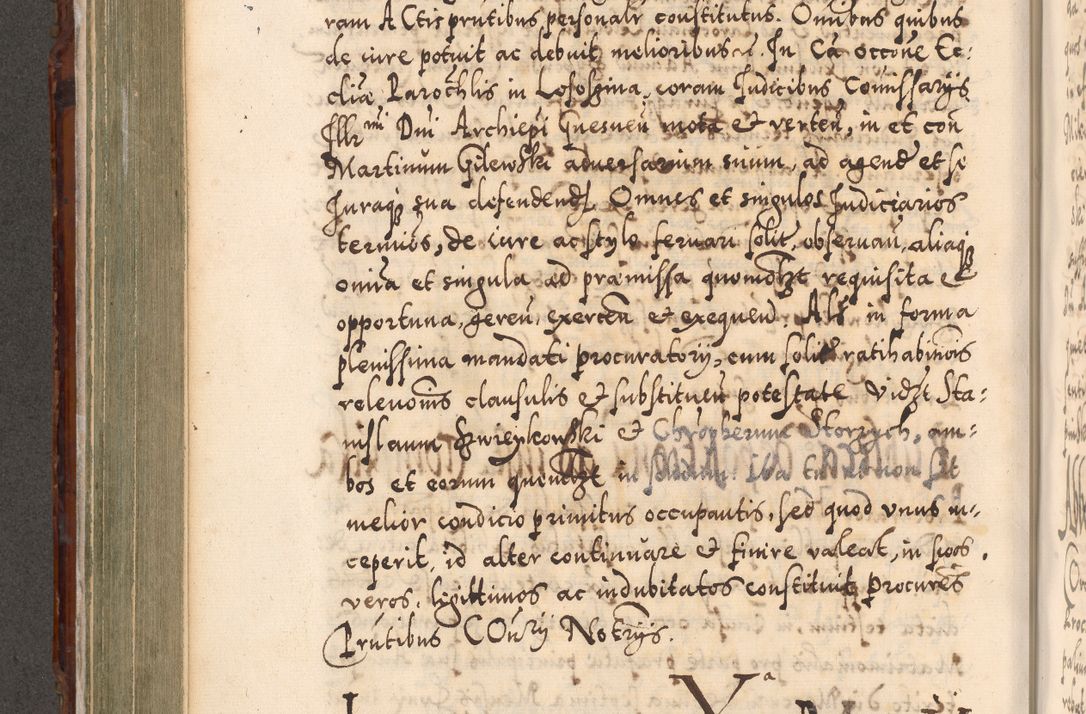 ram ACtis prntibus personalr constitutus. Omibus quibus
de iure potuit ac debuit melioribus In Ca occone Ec-
clia Parochlis in Lososina, coram Judicibus Comissarijs
Illr mi Dni Archiepi Gnesnen mota et verten, in et con
Martinum Gilewski adversarium suum, ad agend et se
Juraqz sua defendend, Omnes et singulos Judiciarios
terminos, de iure ac stylo servari solit, observan, aliaqz
omia et singula ad praemissa quomdlzt requisita et
opportuna, geren, exercen et exequen Als in forma
plenissima mandati procuratorij, cum solit ratihabinois
relevonis clausulis et substituen potestate Vidzt Sta-
nislaum Szwieykowski et Chropherum Storzych, am-
bos et eorum quemlzt in solidum. Ita tn quod non sit
melior condicio primitus occupantis, sed quod vnus in-
ceperit, id alter continuare et finire valeat, in suos
veros, legittimos ac indubitatos constituit Procures
Prntibus COnry Notrijs.